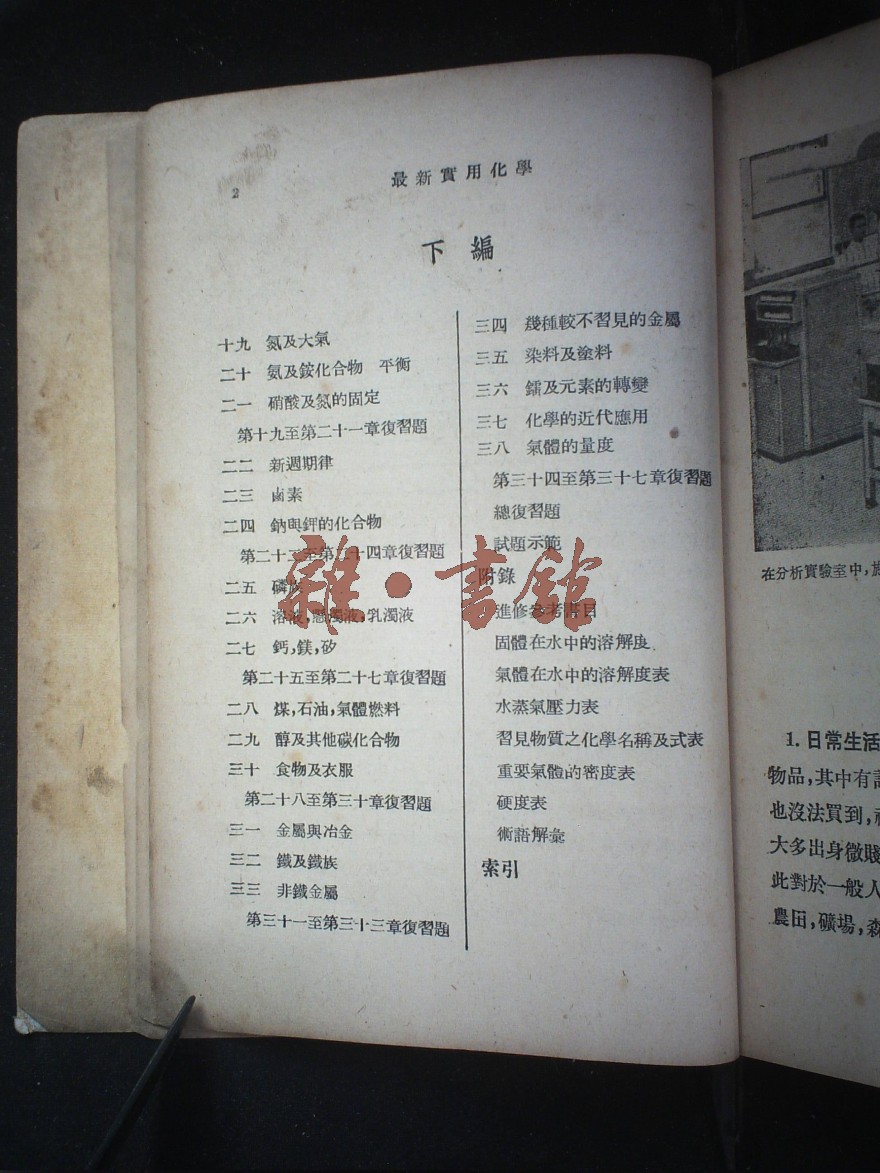 2
最新實用化學
下編
十九 氮及大氣
二十 氨及銨化合物 平衡
二一 硝酸及氮的固定
第十九至第二十一章復習題
二二 新週期律
二三 鹵素
二四 鈉與鉀的化合物
第二十二至第二十四章復習題
二五 磷族
二六 溶液,懸濁液,乳濁液
二七 鈣,鎂,矽
第二十五至第二十七章復習題
二八 煤,石油,氣體燃料
二九 醇及其他碳化合物
三十 食物及衣服
第二十八至第三十章復習題
三一 金屬與冶金
三二 鐵及鐵族
三三 非鐵金屬
第三十一至第三十三章復習題
三四 幾種較不習見的金屬
三五 染料及塗料
三六 鐳及元素的轉變
三七 化學的近代應用
三八 氣體的量度
第三十四至第三十七章復習題
總復習題
試題示範
附錄
進修參考書目
固體在水中的溶解度
氣體在水中的溶解度表
水蒸氣壓力表
習見物質之化學名稱及式表
重要氣體的密度表
硬度表
術語解彙
索引
雜·書館
在分析實驗室中,
1. 日常生活
物品,其中有
也沒法買到,
大多出身微賤
此對於一般人
農田,礦場,森